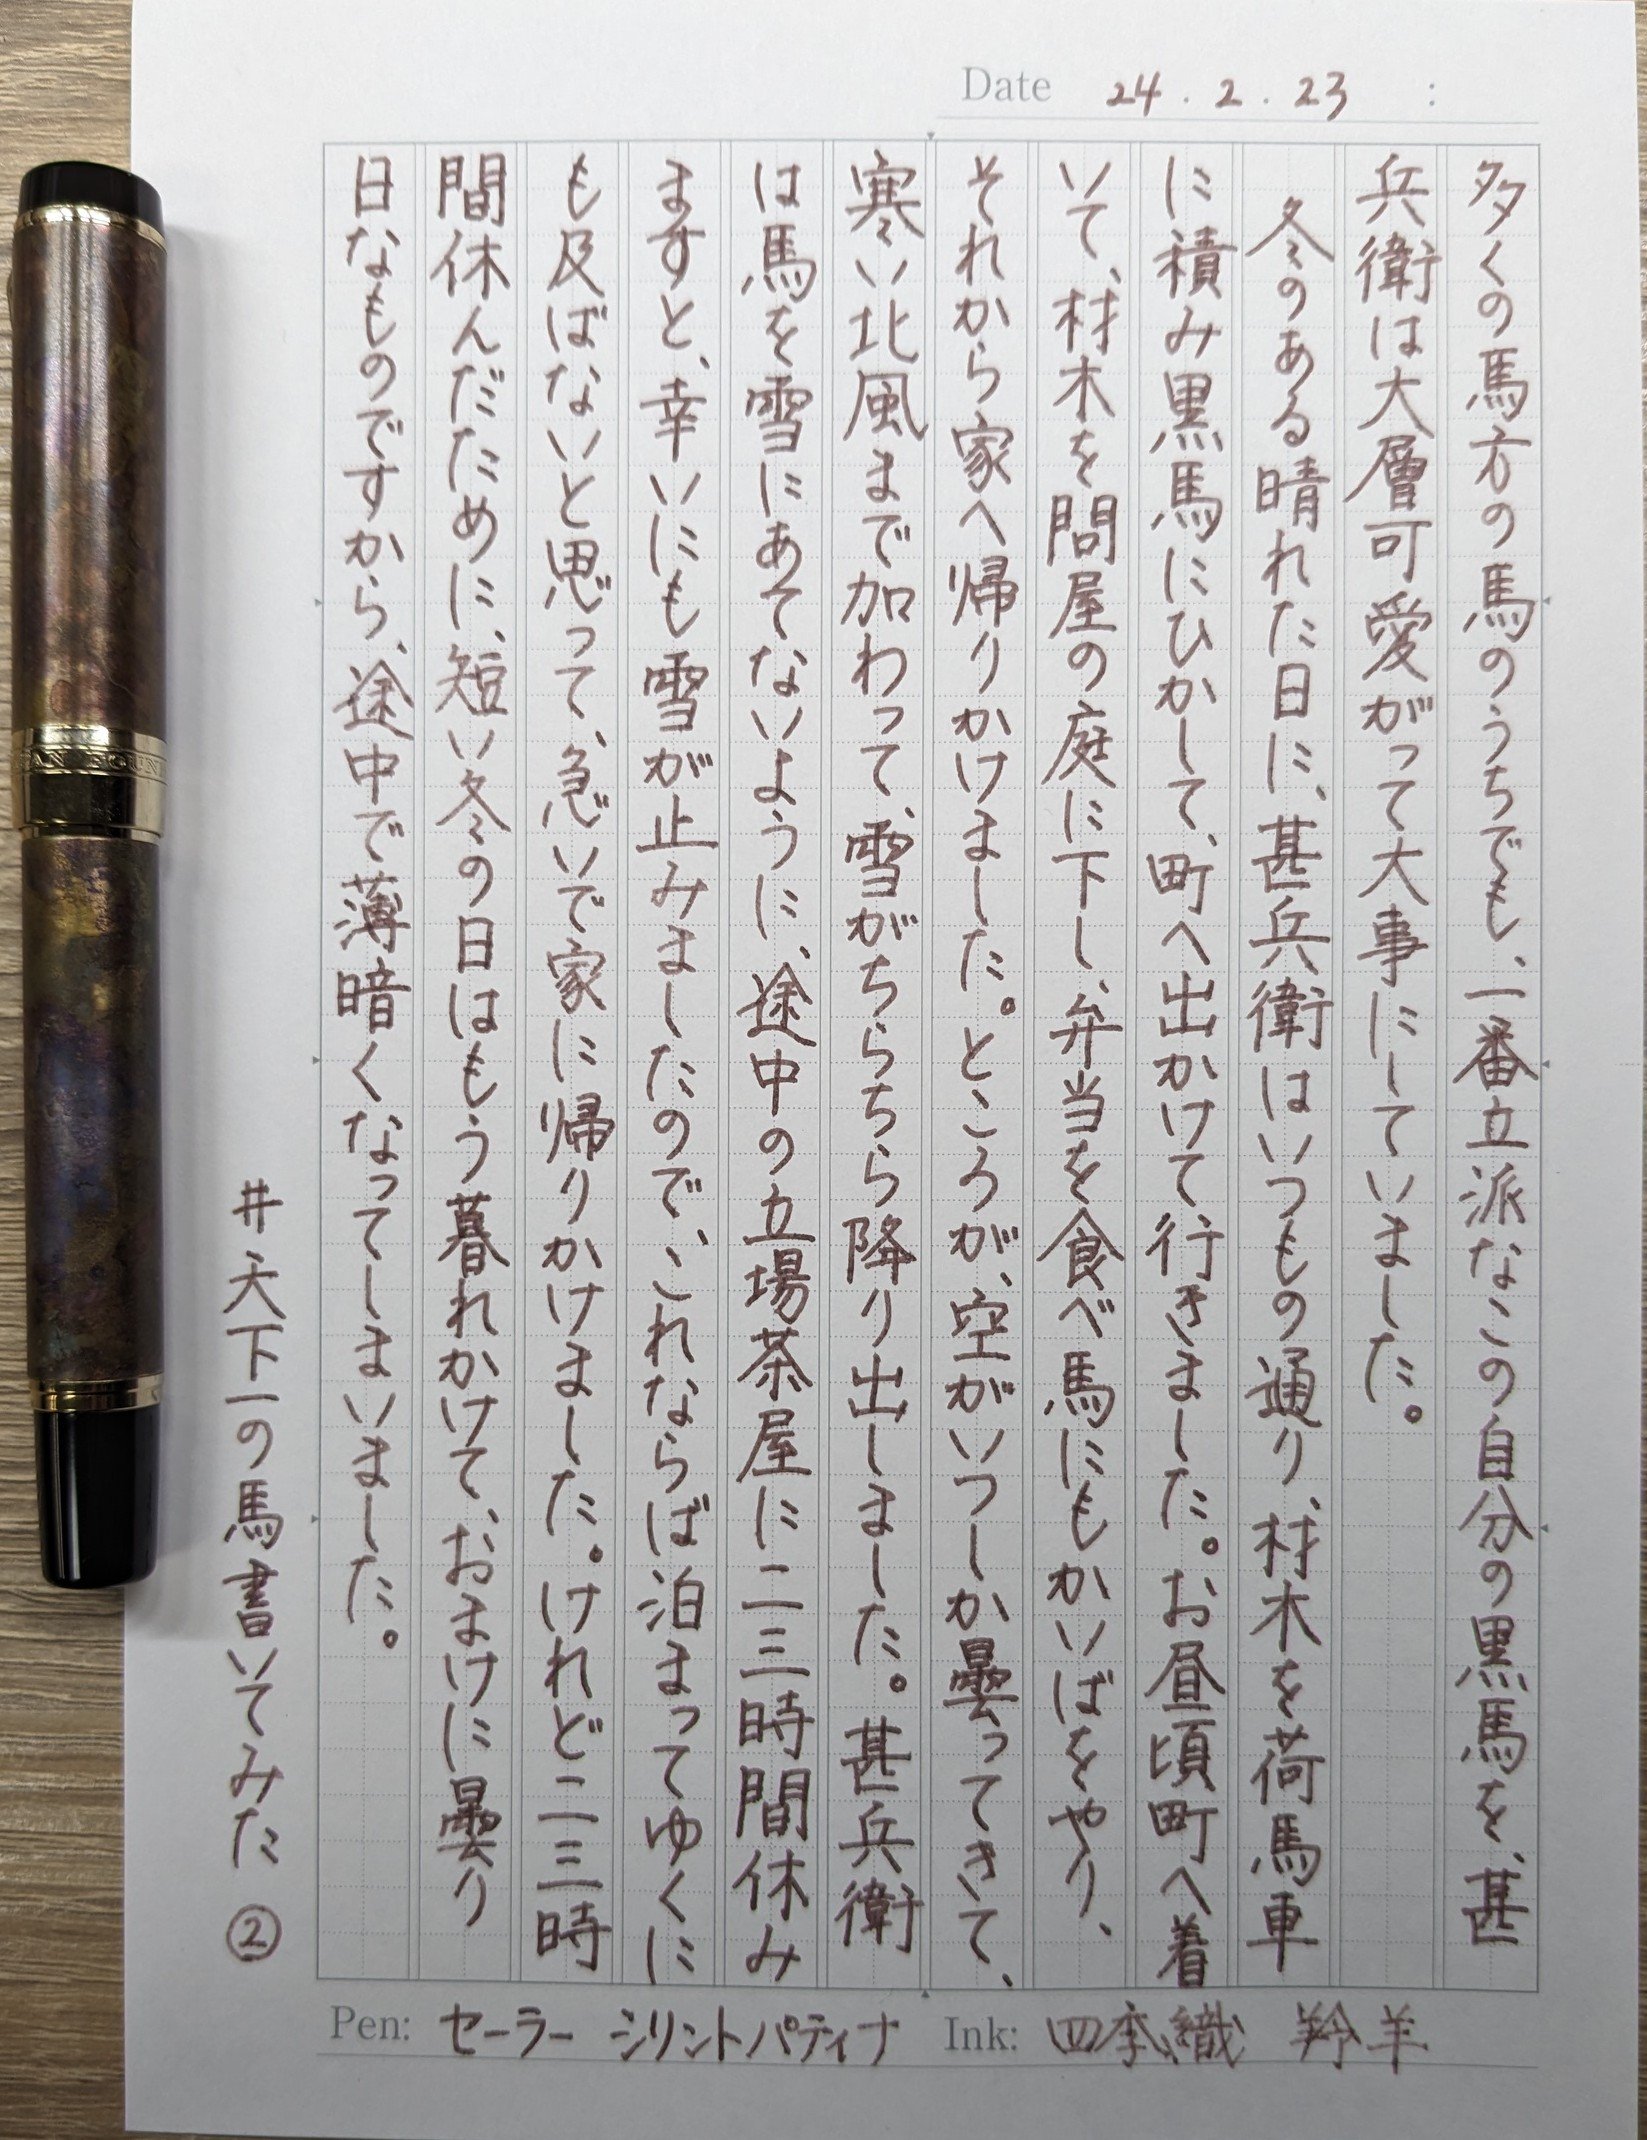 Date 24.2.23 :
多くの馬方の馬のうちでも、一番立派なこの自分の黒馬を、甚
兵衛は大層可愛がって大事にしていました。
冬のある晴れた日に、甚兵衛はいつもの通り、材木を荷馬車
に積み黒馬にひかして、町へ出かけて行きました。お昼頃町へ着
いて、材木を問屋の庭に下し、弁当を食べ馬にもかいばをやり、
それから家へ帰りかけました。ところが、空がいつしか曇ってきて、
寒い北風まで加わって、雪がちらちら降り出しました。甚兵衛
は馬を雪にあてないように、途中の立場茶屋に二三時間休み
ますと、幸いにも雪が止みましたので、これならば泊まってゆくに
も及ばないと思って、急いで家に帰りかけました。けれど二三時
間休んだために、短い冬の日はもう暮れかけて、おまけに曇り
日なものですから、途中で薄暗くなってしまいました。
#天下一の馬書いてみた ②
Pen: セーラー シリントパティナ
Ink: 四季織 羚羊